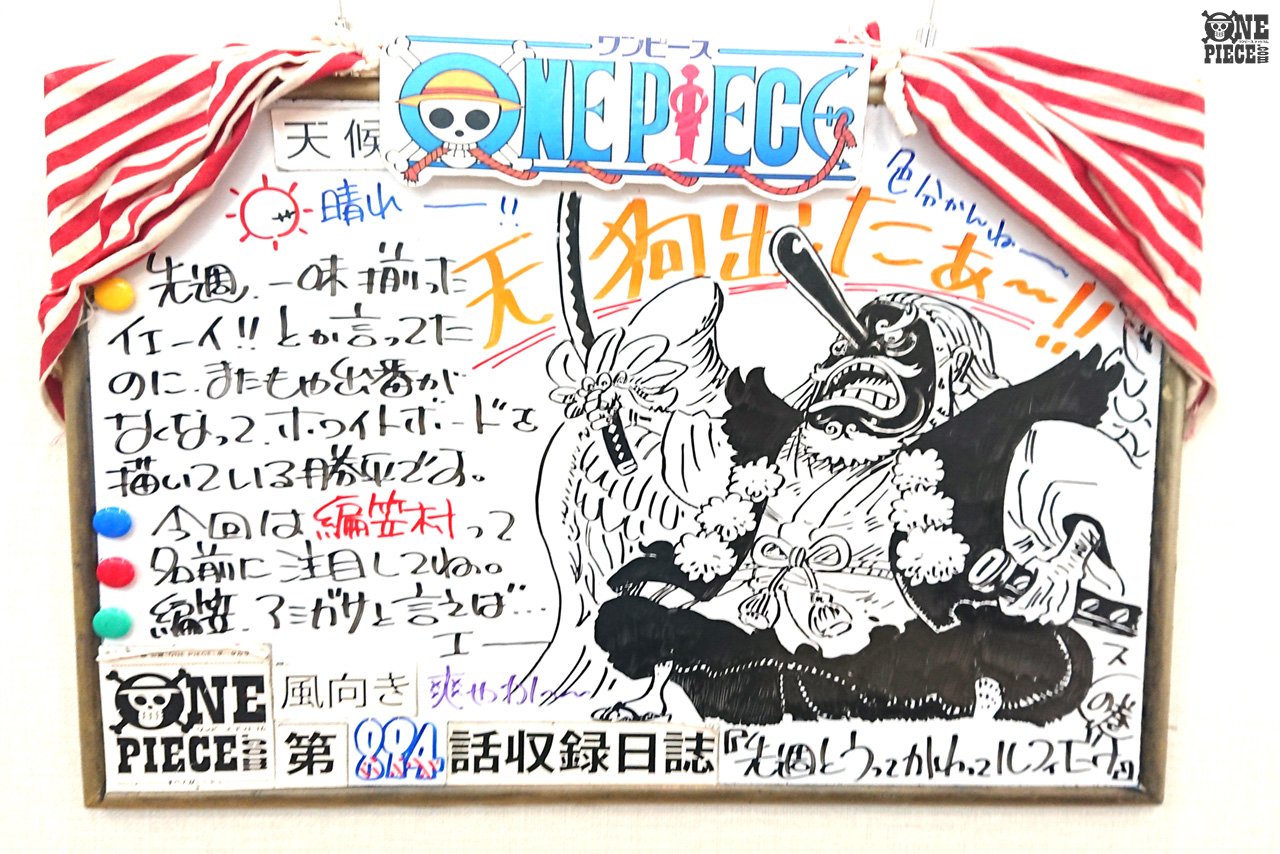 ONE PIECE.com
ワンピース
ONE PIECE
天候
晴れー!!
色分かんねー
天狗出たぁ〜!!
先週、一味揃った
イエーイ!!とか言ってた
のに、またもや出番が
なくなって、ホワイトボードを
描いている勝平です。
今回は編笠村って
名前に注目してね。
編笠、アミガサと言えば…
エー
ONE PIECE.com
風向き
爽やかn〜
第894話収録日誌
『先週とうってかわってルフィモーヴ』